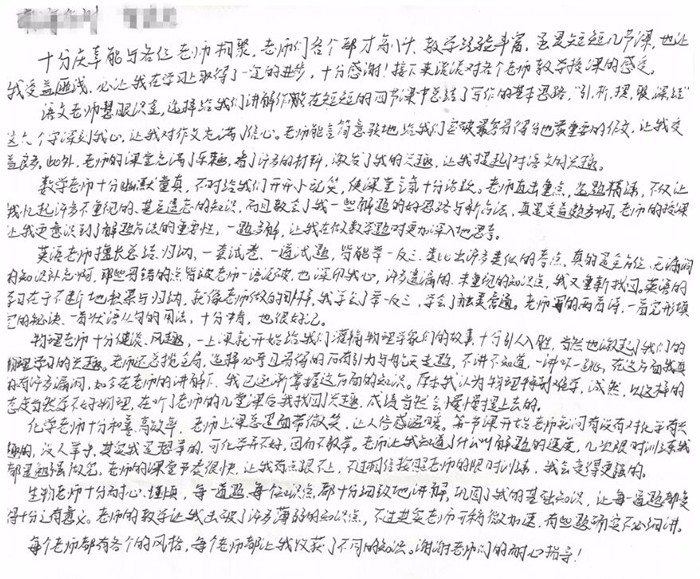 十分庆幸能与各位老师相聚,老师们各个都才高八斗,教学经验丰富,虽是短短几节课,也让
我受益匪浅,必让我在学习上取得了一定的进步,十分感谢!接下来谈谈对各个老师教学授课的感受。
语文老师慧眼识金,选择给我们讲解作文,在短短的四节课中总结了写作的基本思路,"引、析、理、驳、深、结"
这六个字深刻我心,让我对作文充满了信心。老师能言简意赅地给我们突破最容易得分也最重要的作文,让我受
益良多。此外,老师的课堂充满了乐趣,看了许多的材料,激发了我的兴趣,让我提起了对语文的兴趣。
数学老师十分幽默童真,不时给我们开开小玩笑,使课堂气氛十分活跃。老师直击重点,选题精湛,不仅让
我忆起许多不重视的、甚至遗忘的知识,而且教会了我一些解题的好思路与新方法,真是受益款多啊。老师的授课
让我更意识到了解题方法的重要性,一题多解,让我在做数学题时更加深入地思考。
英语老师擅长总结、归纳,一套试卷、一道试题,皆能举一反三,类比出许多类似的考点,真的是全方位、无漏洞
的知识补充啊,那些易错的点皆被老师一语说破,也深印我心,许多遗漏的、未重视的知识点,我又重新找回,英语的
学习在于不断地积累与归纳,就像老师做的那样,我学会了举一反三,学会了触类旁通。老师写的两首诗,一首完形填
空的秘诀,一首状语从句的用法,十分有才,也很好记。
物理老师十分健谈、风趣,一上课就开始给我们灌输物理学家们的故事,十分引人入胜,自然也激起了我们的
物理学习的兴趣。老师还总揽全局,选择必考且易得的万有引力与每天走题,不讲不知道,一讲吓一跳,在这方面我真
的有许多漏洞,如今在老师的讲解下,我已逐渐掌握这方面的知识。原本我认为物理特别难学,诚然,以这样的
态度自然学不好物理,在听了老师的几堂课后我找回兴趣,成绩自然会慢慢提上去的。
化学老师十分和蔼、高效率,老师上课总是面带微笑,让人倍感温暖,每节课开始老师先问有没有对化学有兴
趣的,没人举手,其实我是想举的,可化学并不好,因而不敢举。老师让我知道了什么叫解题的速度,几次限时训练我
都是勉强做完,老师的课堂节奏很快,让我有点跟不上,不过相信按照老师的限时训练,我会变得更强的。
生物老师十分耐心、谨慎,每一道题,每个知识点都十分细致地讲解,巩固了我的基础知识,让每一道题都变
得十分有意义。老师的教学让我击破了许多薄弱的知识点,不过其实老师可稍微加速,有些题确实不必细讲。
每个老师都有各个的风格,每个老师都让我收获了不同的知识。谢谢老师们的耐心指导!